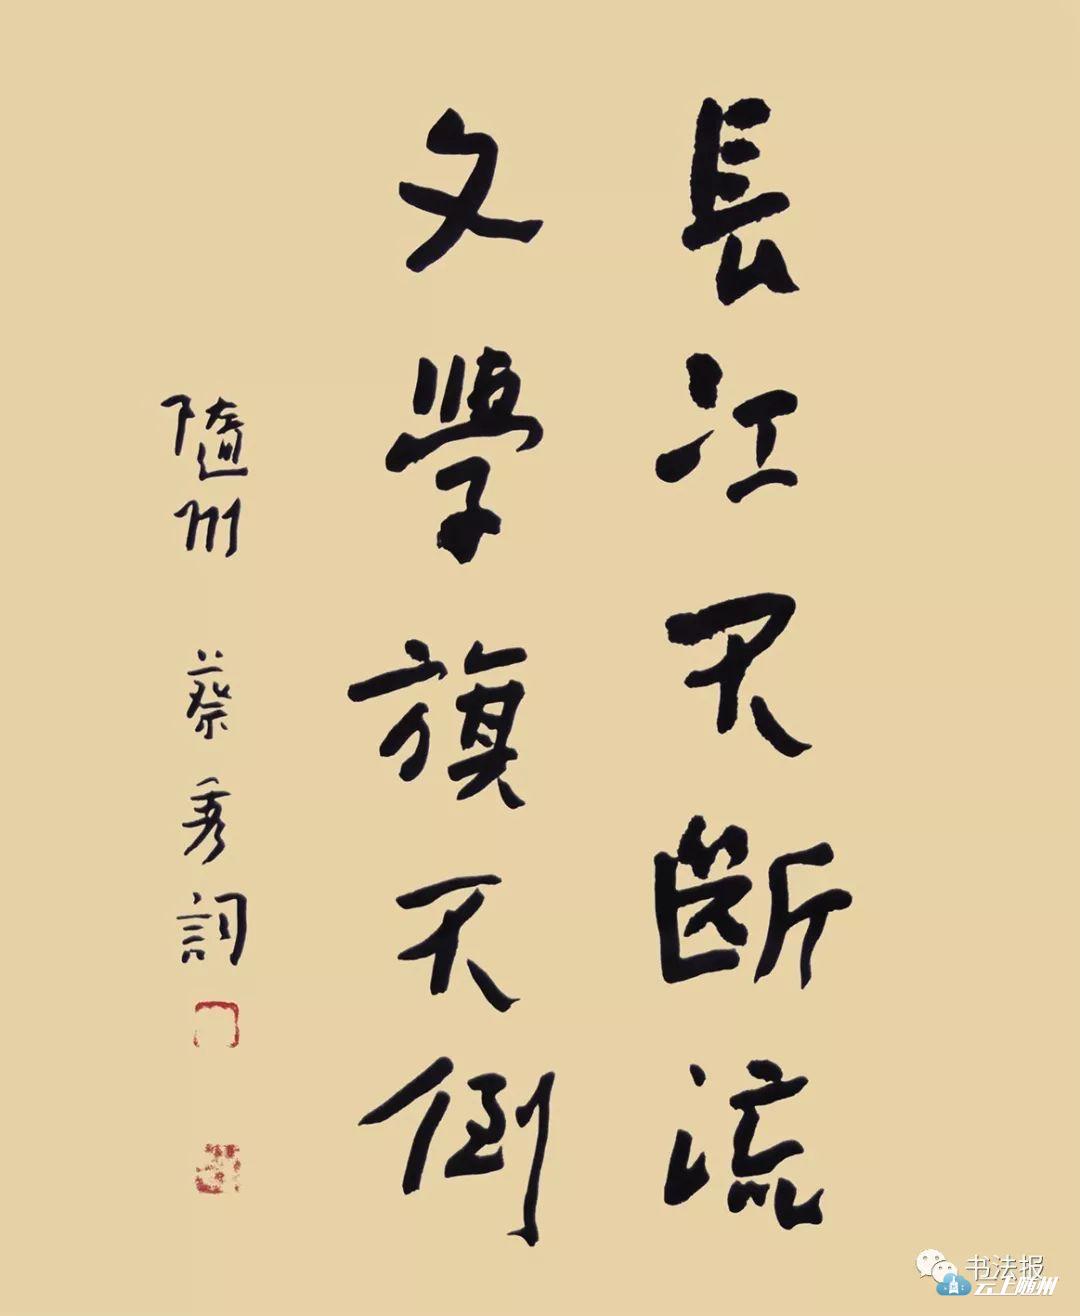 長江不斷流
文學旗不倒
隨州 蔡秀詞
书法报
云上随州